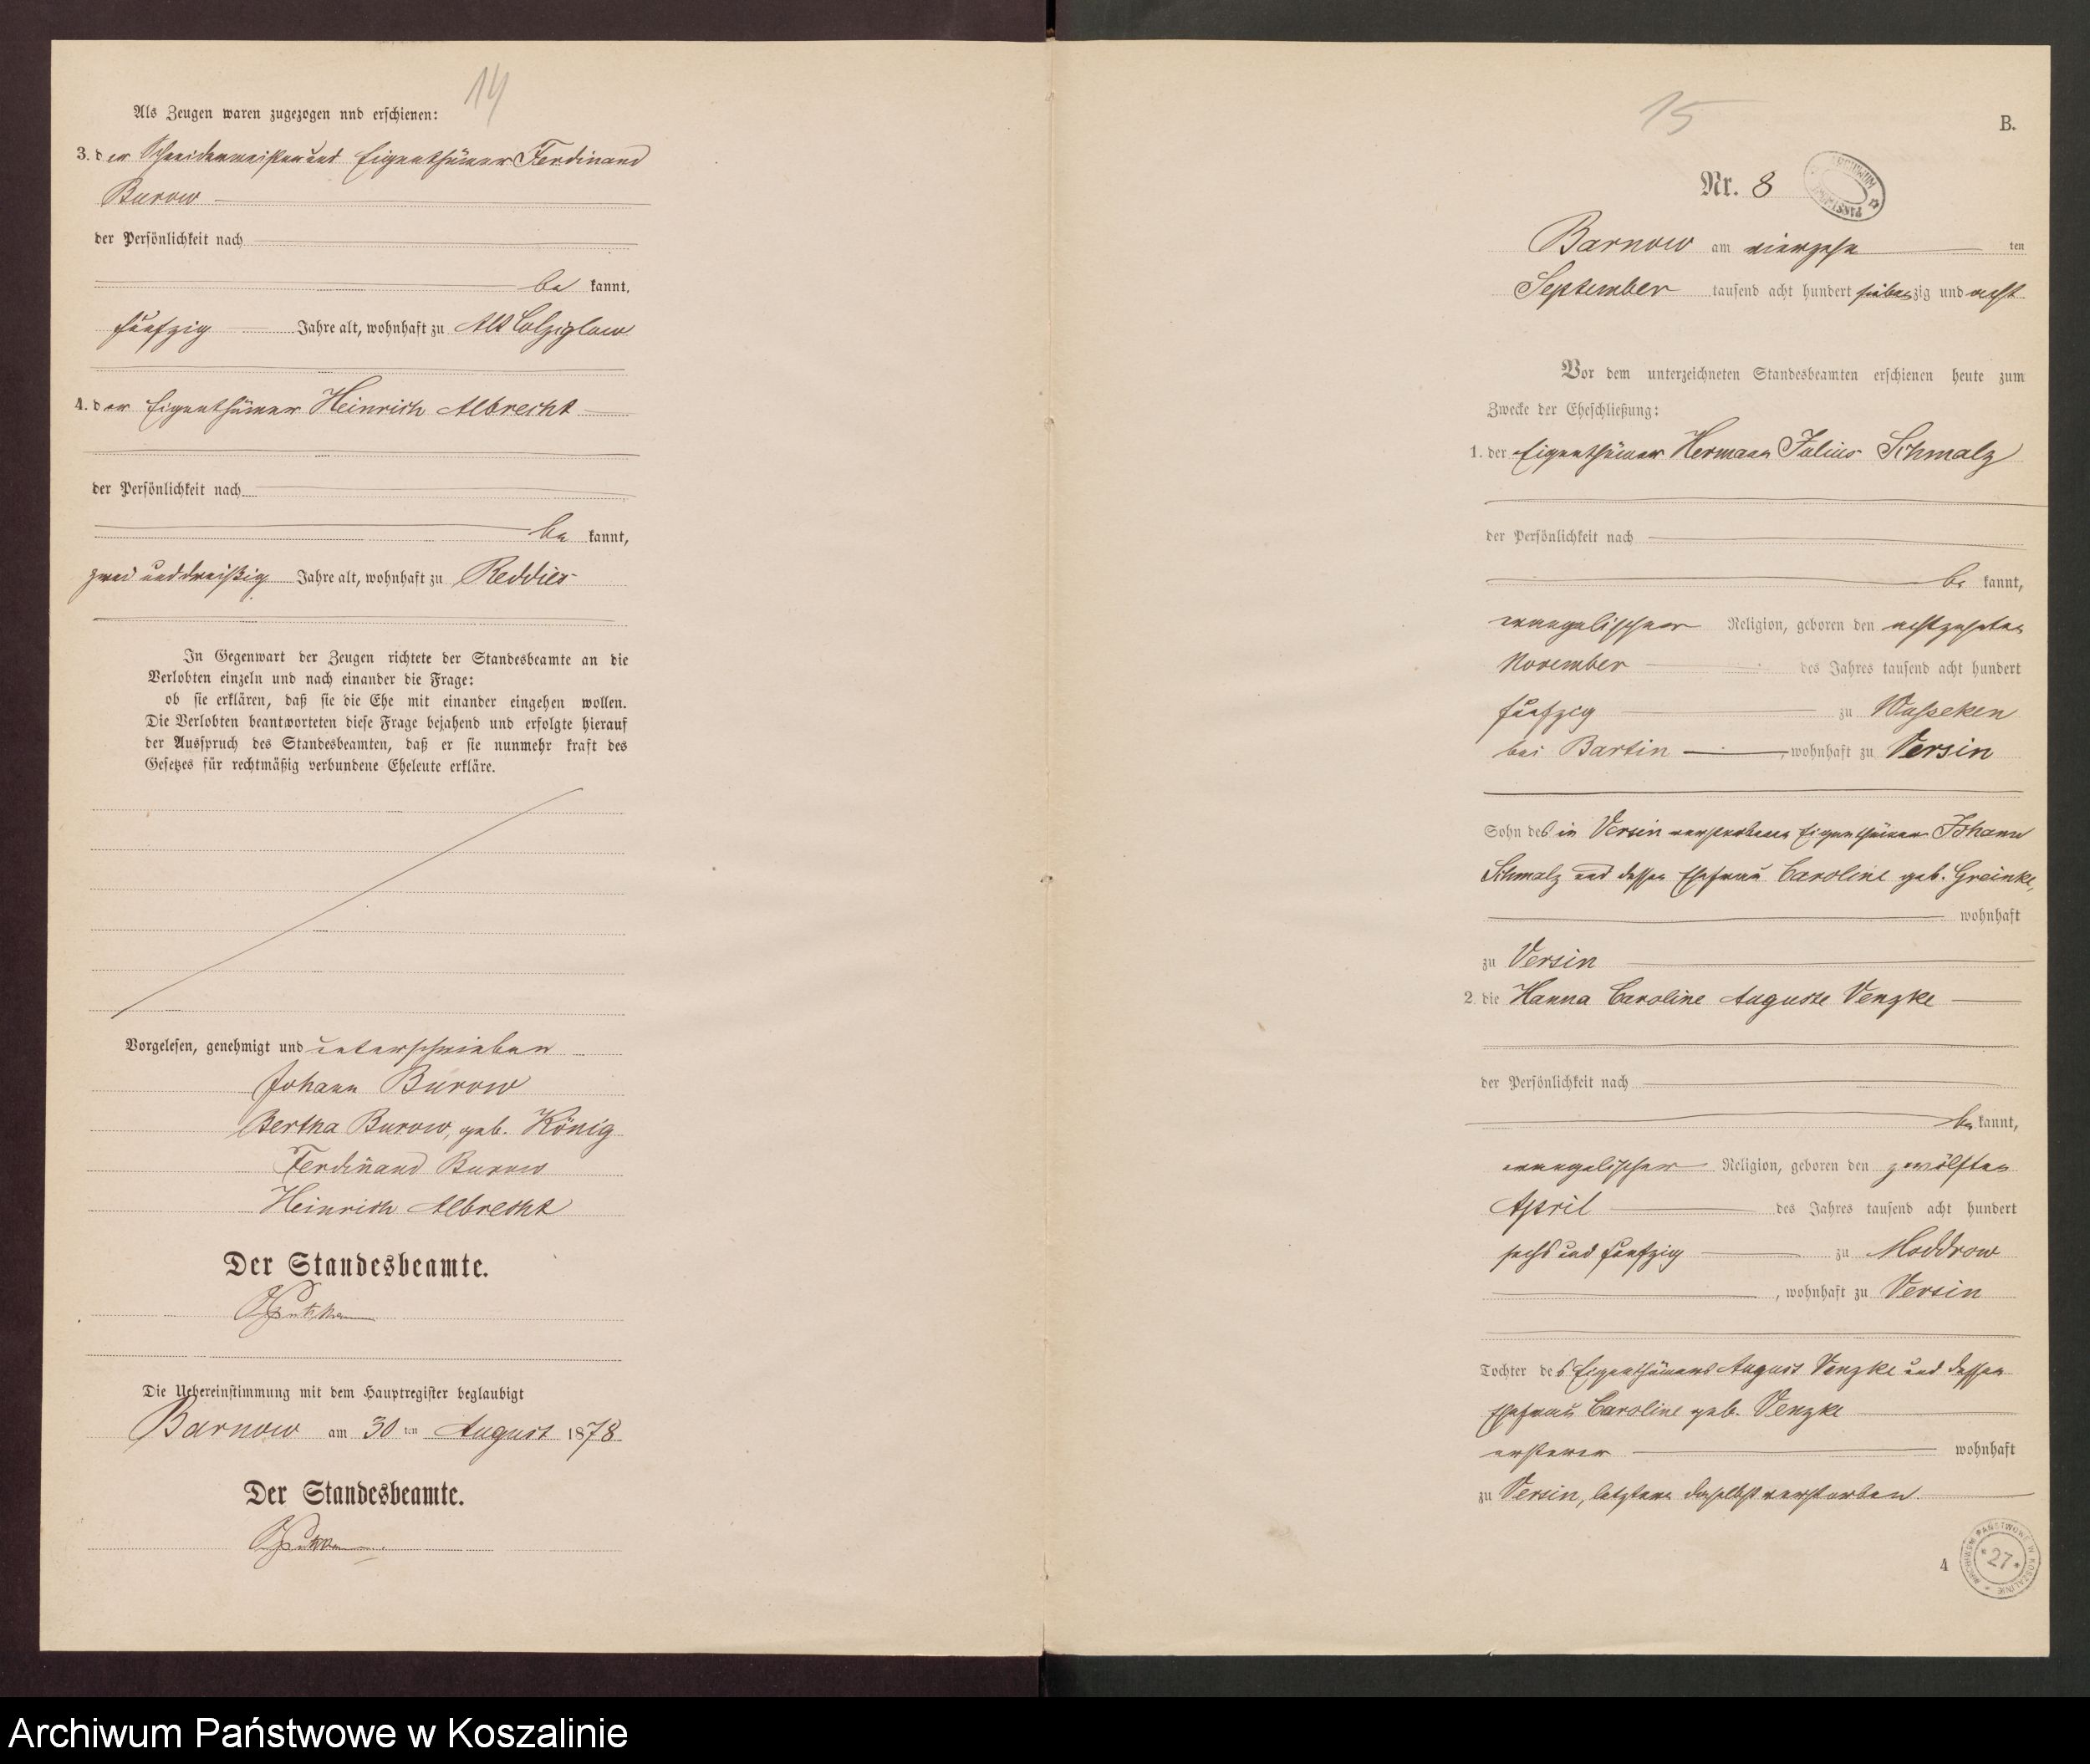 14
Als Zeugen waren zugezogen nnd erschienen:
3. der Schneidermeister und Eigenthümer Ferdinand
Burow
der Persönlichkeit nach
be kannt,
fünfzig Jahre alt, wohnhaft zu Alt Colziglow
4. der Eigenthümer Heinrich Albrecht
der Persönlichkeit nach
be kannt,
zwei und dreißig Jahre alt, wohnhaft zu Reddies
In Gegenwart der Zeugen richtete der Standesbeamte an die
Verlobten einzeln und nach einander die Frage:
ob sie erklären, daß sie die Ehe mit einander eingehen wollen.
Die Verlobten beantworteten diese Frage bejahend und erfolgte hierauf
der Ausspruch des Standesbeamten, daß er sie nunmehr kraft des
Gesetzes für rechtmäßig verbundene Eheleute erkläre.
Vorgelesen, genehmigt und unterschrieben
Johann Burow
Bertha Burow, geb. König
Ferdinand Burow
Heinrich Albrecht
Der Standesbeamte.
Die Uebereinstimmung mit dem Hauptregister beglaubigt
Barnow am 30 ten August 1878
Der Standesbeamte.
15
B.
Nr. 8
Barnow am vierzehn ten
September tausend acht hundert siebenzig und acht
Vor dem unterzeichneten Standesbeamten erschienen heute zum
Zwecke der Eheschließung:
1. der Eigenthümer Hermann Julius Schmalz
der Persönlichkeit nach
be kannt,
evangelischer Religion, geboren den achtzehnten
November des Jahres tausend acht hundert
fünfzig zu Wusseken
bei Bartin, wohnhaft zu Versin
Sohn des in Versin verstorbenen Eigenthümer Johann
Schmalz und dessen Ehefrau Caroline geb. Greinke,
wohnhaft
zu Versin
2. die Hanna Caroline Auguste Venzke
der Persönlichkeit nach
be kannt,
evangelischer Religion, geboren den zwölften
April des Jahres tausend acht hundert
sechs und fünfzig zu Moddrow
, wohnhaft zu Versin
Tochter des Eigenthümers August Venzke und dessen
Ehefrau Caroline geb. Venzke
ersterer wohnhaft
zu Versin, letztere daselbst verstorben.
4
ARCHIWUM PAŃSTWOWE W KOSZALINIE
* 27 *
Archiwum Państwowe w Koszalinie